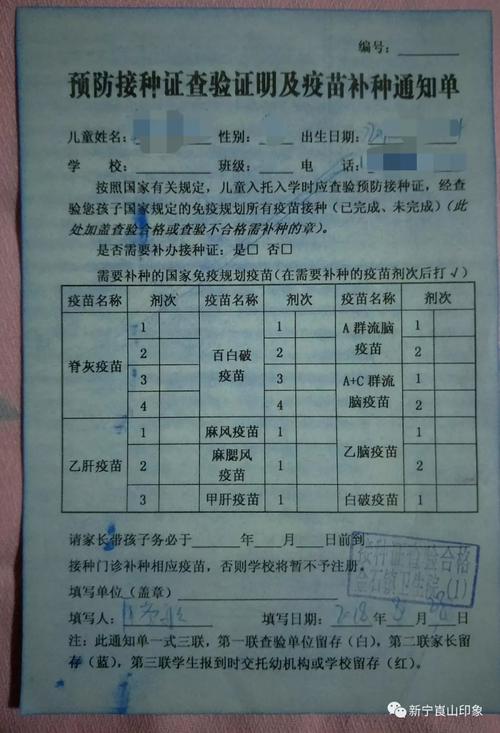 编号：
预防接种证查验证明及疫苗补种通知单
儿童姓名： 性别： 出生日期：
学 校： 班级： 电 话：
按照国家有关规定，儿童入托入学时应查验预防接种证，经查
验您孩子国家规定的免疫规划所有疫苗接种（已完成、未完成）(此
处加盖查验合格或查验不合格需补种的章)。
是否需要补办接种证：是□ 否□
需要补种的国家免疫规划疫苗(在需要补种的疫苗剂次后打√)
疫苗名称 剂次 疫苗名称 剂次 疫苗名称 剂次
脊灰疫苗 1 2 3 4
百白破疫苗 1 2 3 4
A群流脑疫苗 1 2
A+C群流脑疫苗 1 2
乙肝疫苗 1 2 3
麻风疫苗 1
麻腮风疫苗 1
甲肝疫苗 1
乙脑疫苗 1 2
白破疫苗 1
请家长带孩子务必于 年 月 日前到
接种门诊补种相应疫苗，否则学校将暂不予注册。
接种证查验合格
金石镇卫生院(1)
填写单位（盖章）
填写人： 填写日期：2018年 月28日
注：此通知单一式三联，第一联查验单位留存（白），第二联家长留
存（蓝），第三联学生报到时交托幼机构或学校留存（红）。
新宁崀山印象